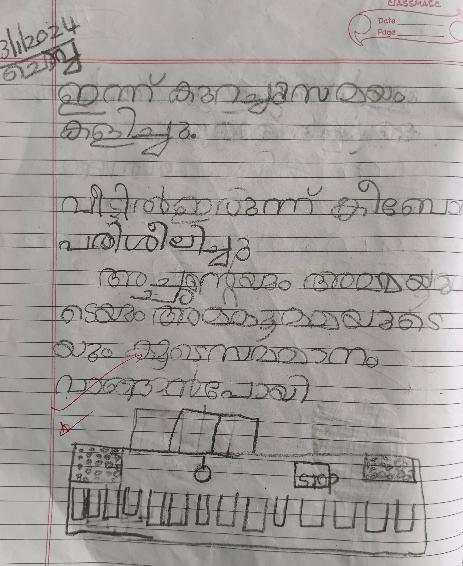 CLASSMATE
Date
Page
3/1/2024
ഇന്ന് കുറച്ചുസമയം
കളിച്ചു.
വീട്ടിൽഇരുന്ന് കീബോ
പരിശീലിച്ചു
അച്ഛന്റെയും അമ്മയു
ടെയും അമ്മൂമ്മയുടെ
യും കൂടെസമ്മാനം
വാങ്ങാൻപോയി
STOP